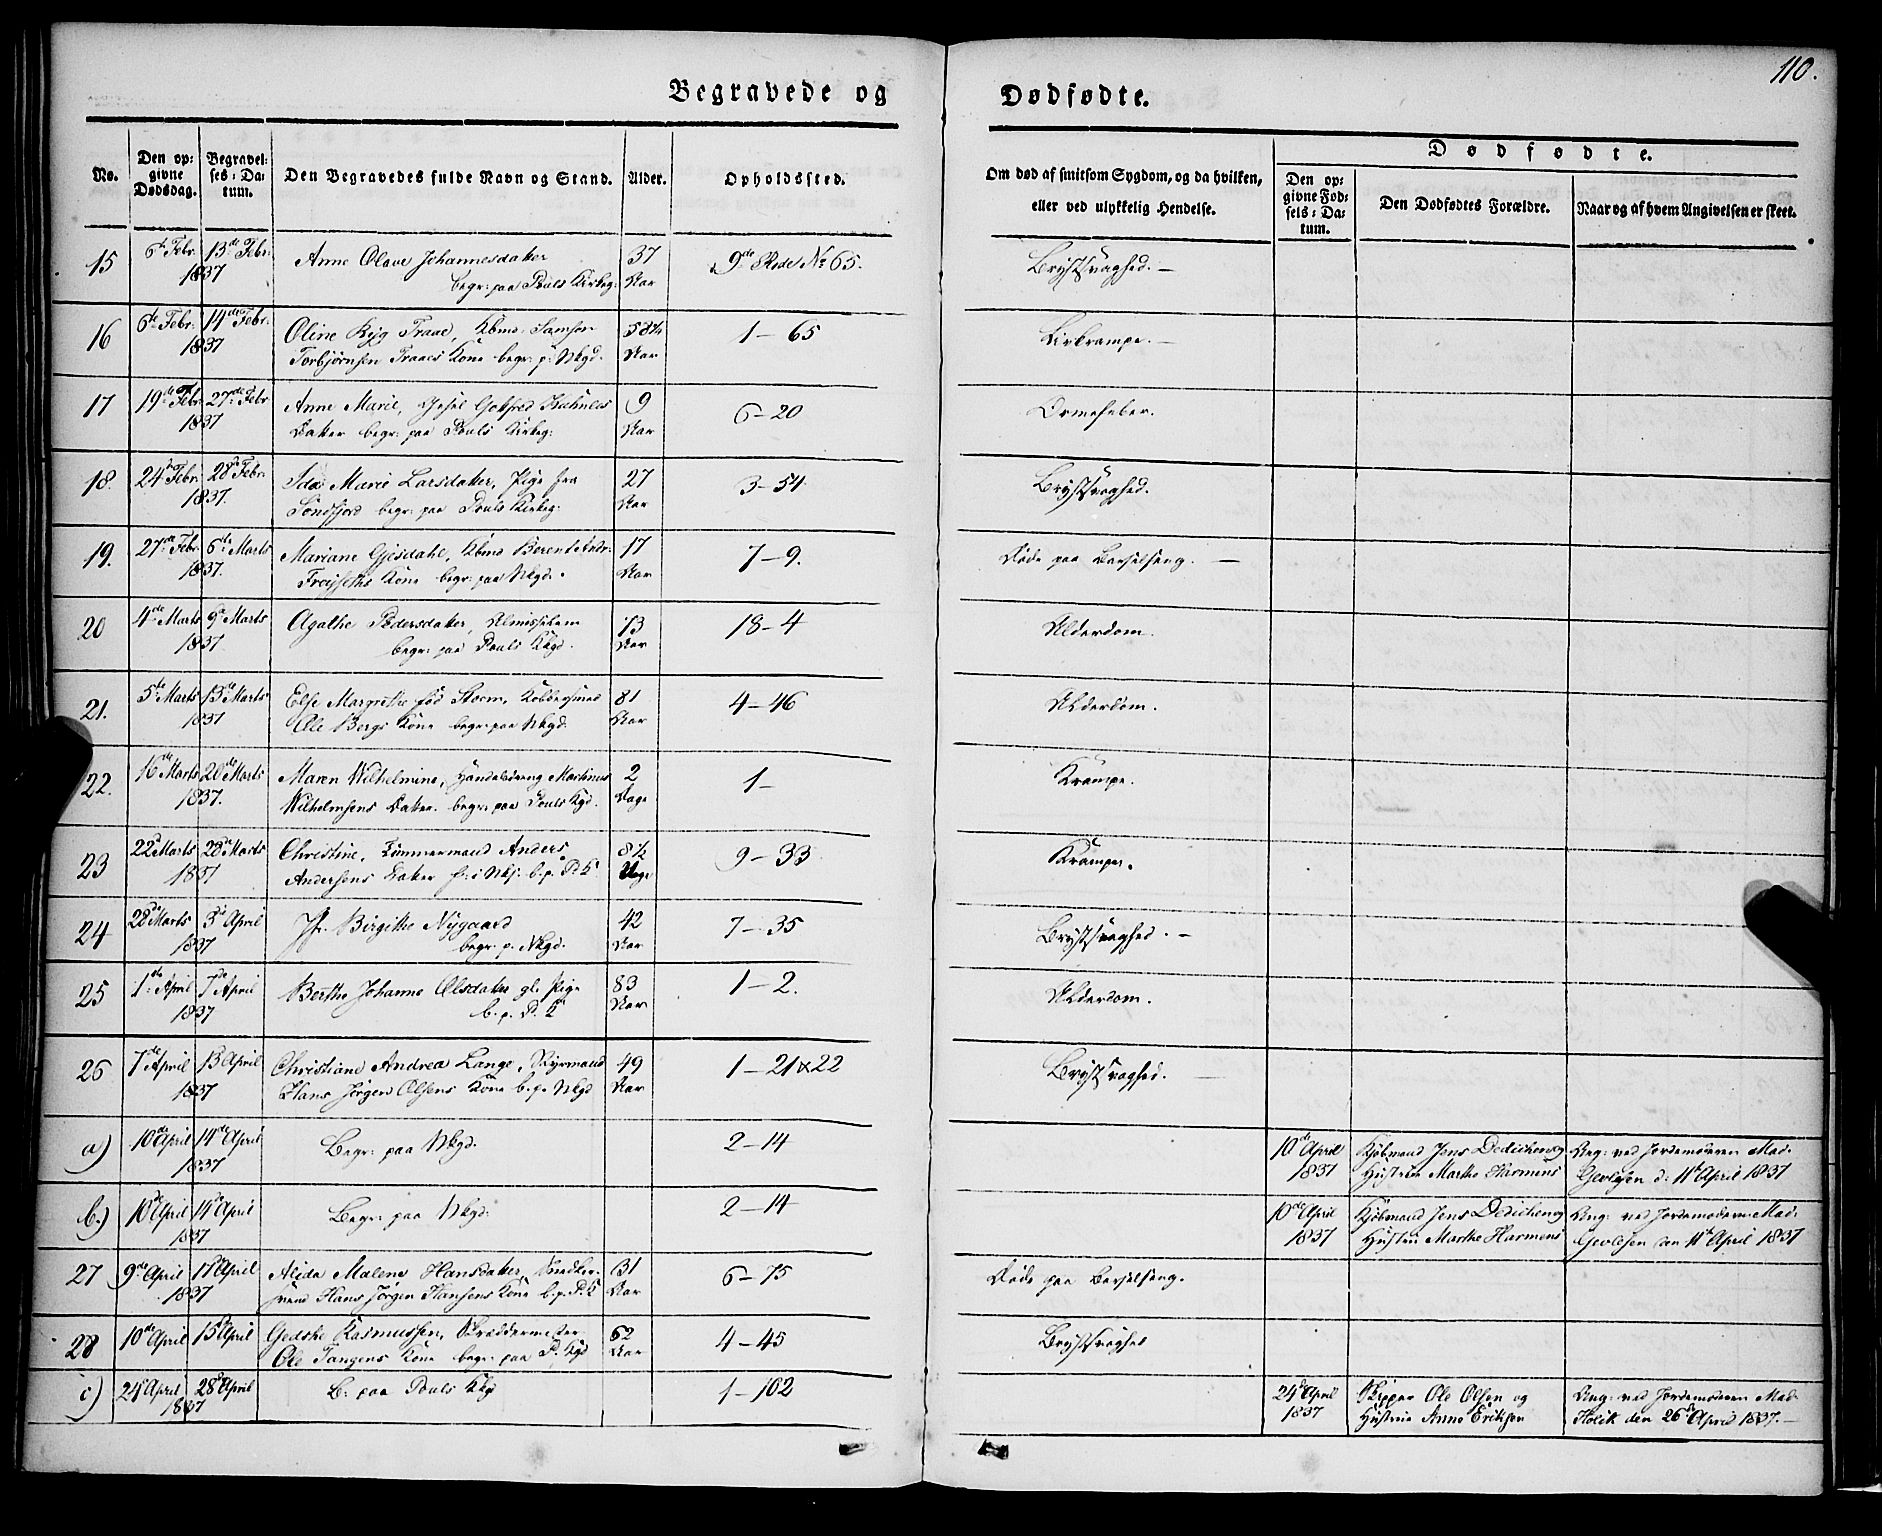 110.
Begravede og Dødfødte.
No. Den opgivne Dødsdag. Begravelses-Datum. Den Begravedes fulde Navn og Stand. Alder. Opholdssted. Om død af smitsom Sygdom, og da hvilken, eller ved ulykkelig Hendelse. Dødfødte. Den opgivne Fødsels-Datum. Den Dødfødtes Forældre. Naar og af hvem Angivelsen er skeet.
15 6te Febr. 13de Febr. 1837 Anne Olave Johannesdatter 37 Aar 9de Rode No 65. Brystsvaghed. —
begr: paa Pouls Kirkeg:
16 6te Febr. 14de Febr. 1837 Oline Ryg Traae, Kbmd. Samson 58½ Aar 1 – 65
Torbjørnsen Traaes Kone begr: p: Nkgd.
17 19de Febr 27de Febr 1837 Anne Marie, Gottfred 9 Aar 6 – 20 Ormefeber.
Datter begr: paa Pouls Kirkeg:
18. 24de Febr. 28de Febr. 1837. Ida Marie Larsdatter, Pige fra 27 Aar 3 – 54 Brystsvaghed.
Søndfjord begr: paa Pouls Kirkeg:
19. 27de Febr. 6te Marts 1837. Mariane Gjesdahl, Kbmd Berent 17 Aar 7 – 9. Døde paa Barselseng. —
Kone begr: paa Nkgd.
20 4de Marts 9de Marts 1837 Agathe Pedersdatter, Almisselem 73 Aar 18 – 4 Alderdom.
begr: paa Pouls Kkgd.
21. 5te Marts 13de Marts 1837 Else Margrethe fød Storm, Kobbersmed 81 Aar 4 – 46 Alderdom.
Ole Bergs Kone begr: paa Nkgd.
22. 16de Marts 20de Marts 1837. Maren Wilhelmine, Handelsdreng Martinus 2 Dage 1 – Krampe.
Wilhelmsens Datter. begr: paa Pouls Kgd.
23 22de Marts 28de Marts 1837 Christine, Tømmermand Anders 8½ Uge 9 – 33 Krampe.
Andersens Datter b. p. P. K
24 28de Marts 3de April 1837 Jfr. Birgithe Nygaard 42 Aar 7 – 35 Brystsvaghed. –
begr. p. Nkgd.
25 1ste April 7de April 1837 Berthe Johanne Olsdatter gl. Pige 83 Aar 1 – 2. Alderdom.
b. p. P. K
26 7de April 13 April 1837 Christiane Andrea Lange, Styrmand 49 Aar 1 – 21 & 22 Brystsvaghed.
Hans Jørgen Olsens Kone b. p. Nkgd
a) 10de April 14de April 1837 Begr: paa Nkgd. 2 – 14 10de April 1837 Kjøbmand Jens Dedichen og Hustrue Marthe Harmens Ang: ved Jordemoderen Mad. d: 11te April 1837
b.) 10de April 14de April 1837 Begr: paa Nkgd: 2 – 14 10de April 1837 Kjøbmand Jens Dedichen og Hustrue Marthe Harmens Ang: ved Jordemoderen Mad. den 11te April 1837
27 9de April 17de April 1837 Alida Malene Hansdatter, Snedker- 31 Aar 6 – 75 Døde paa Barselseng.
svend Hans Jørgen Hansens Kone b. p. P. K
28 10de April 15de April Gedske Rasmussen, Skræddermester 62 Aar 4 – 45 Brystsvaghed
Ole Tangens Kone begr: paa P. Kgd
c) 24de April 28de April 1837 B: paa Pouls Kkg 1 – 102 24de April 1837 Skipper Ole Olsen og Hustrue Anne Eriksen Ang: ved Jordemoderen Mad. den 26de April 1837. –